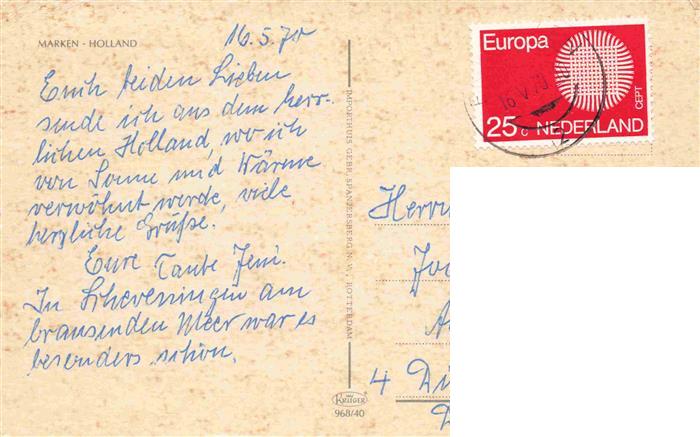 MARKEN - HOLLAND
16.5.70
Euch beiden Lieben
sende ich aus dem herr-
lichen Holland, wo ich
von Sonne und Wärme
verwöhnt werde, viele
herzliche Grüße.
Eure Tante Jeni.
In Scheveningen am
brausenden Meer war es
besonders schön.
IMPORTHUIS GEBR. SPANJERSBERG N.V., ROTTERDAM
KRÜGER
968/40
Europa
CEPT
25c NEDERLAND
16 V 70
Herrn
4 Dü